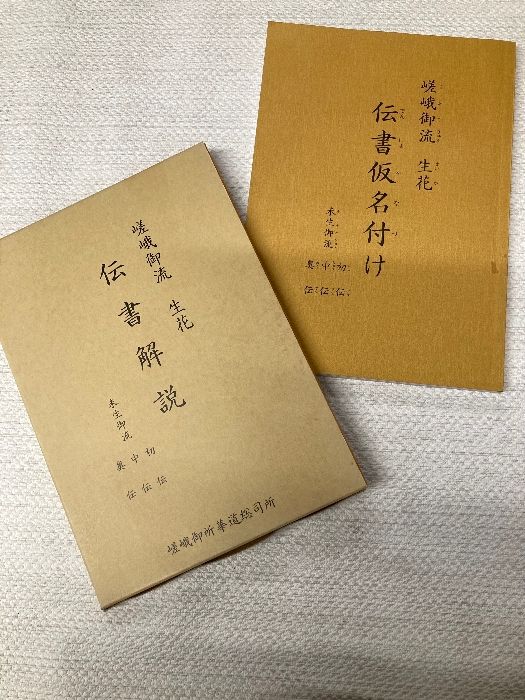 嵯峨御流 生花
伝書仮名付け
未生御流
初伝
中伝
奥伝
嵯峨御流 生花
伝書解説
未生御流
初伝
中伝
奥伝
嵯峨御所華道総司所